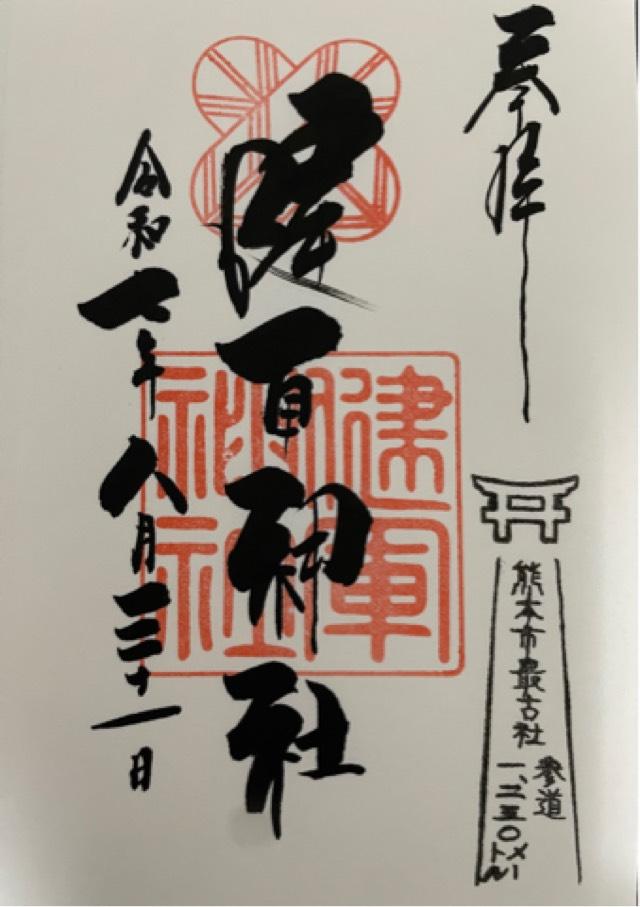 奉拝
熊本市最古社
参道
一、二五〇メートル
健軍神社
健軍神社
令和七年八月三十一日